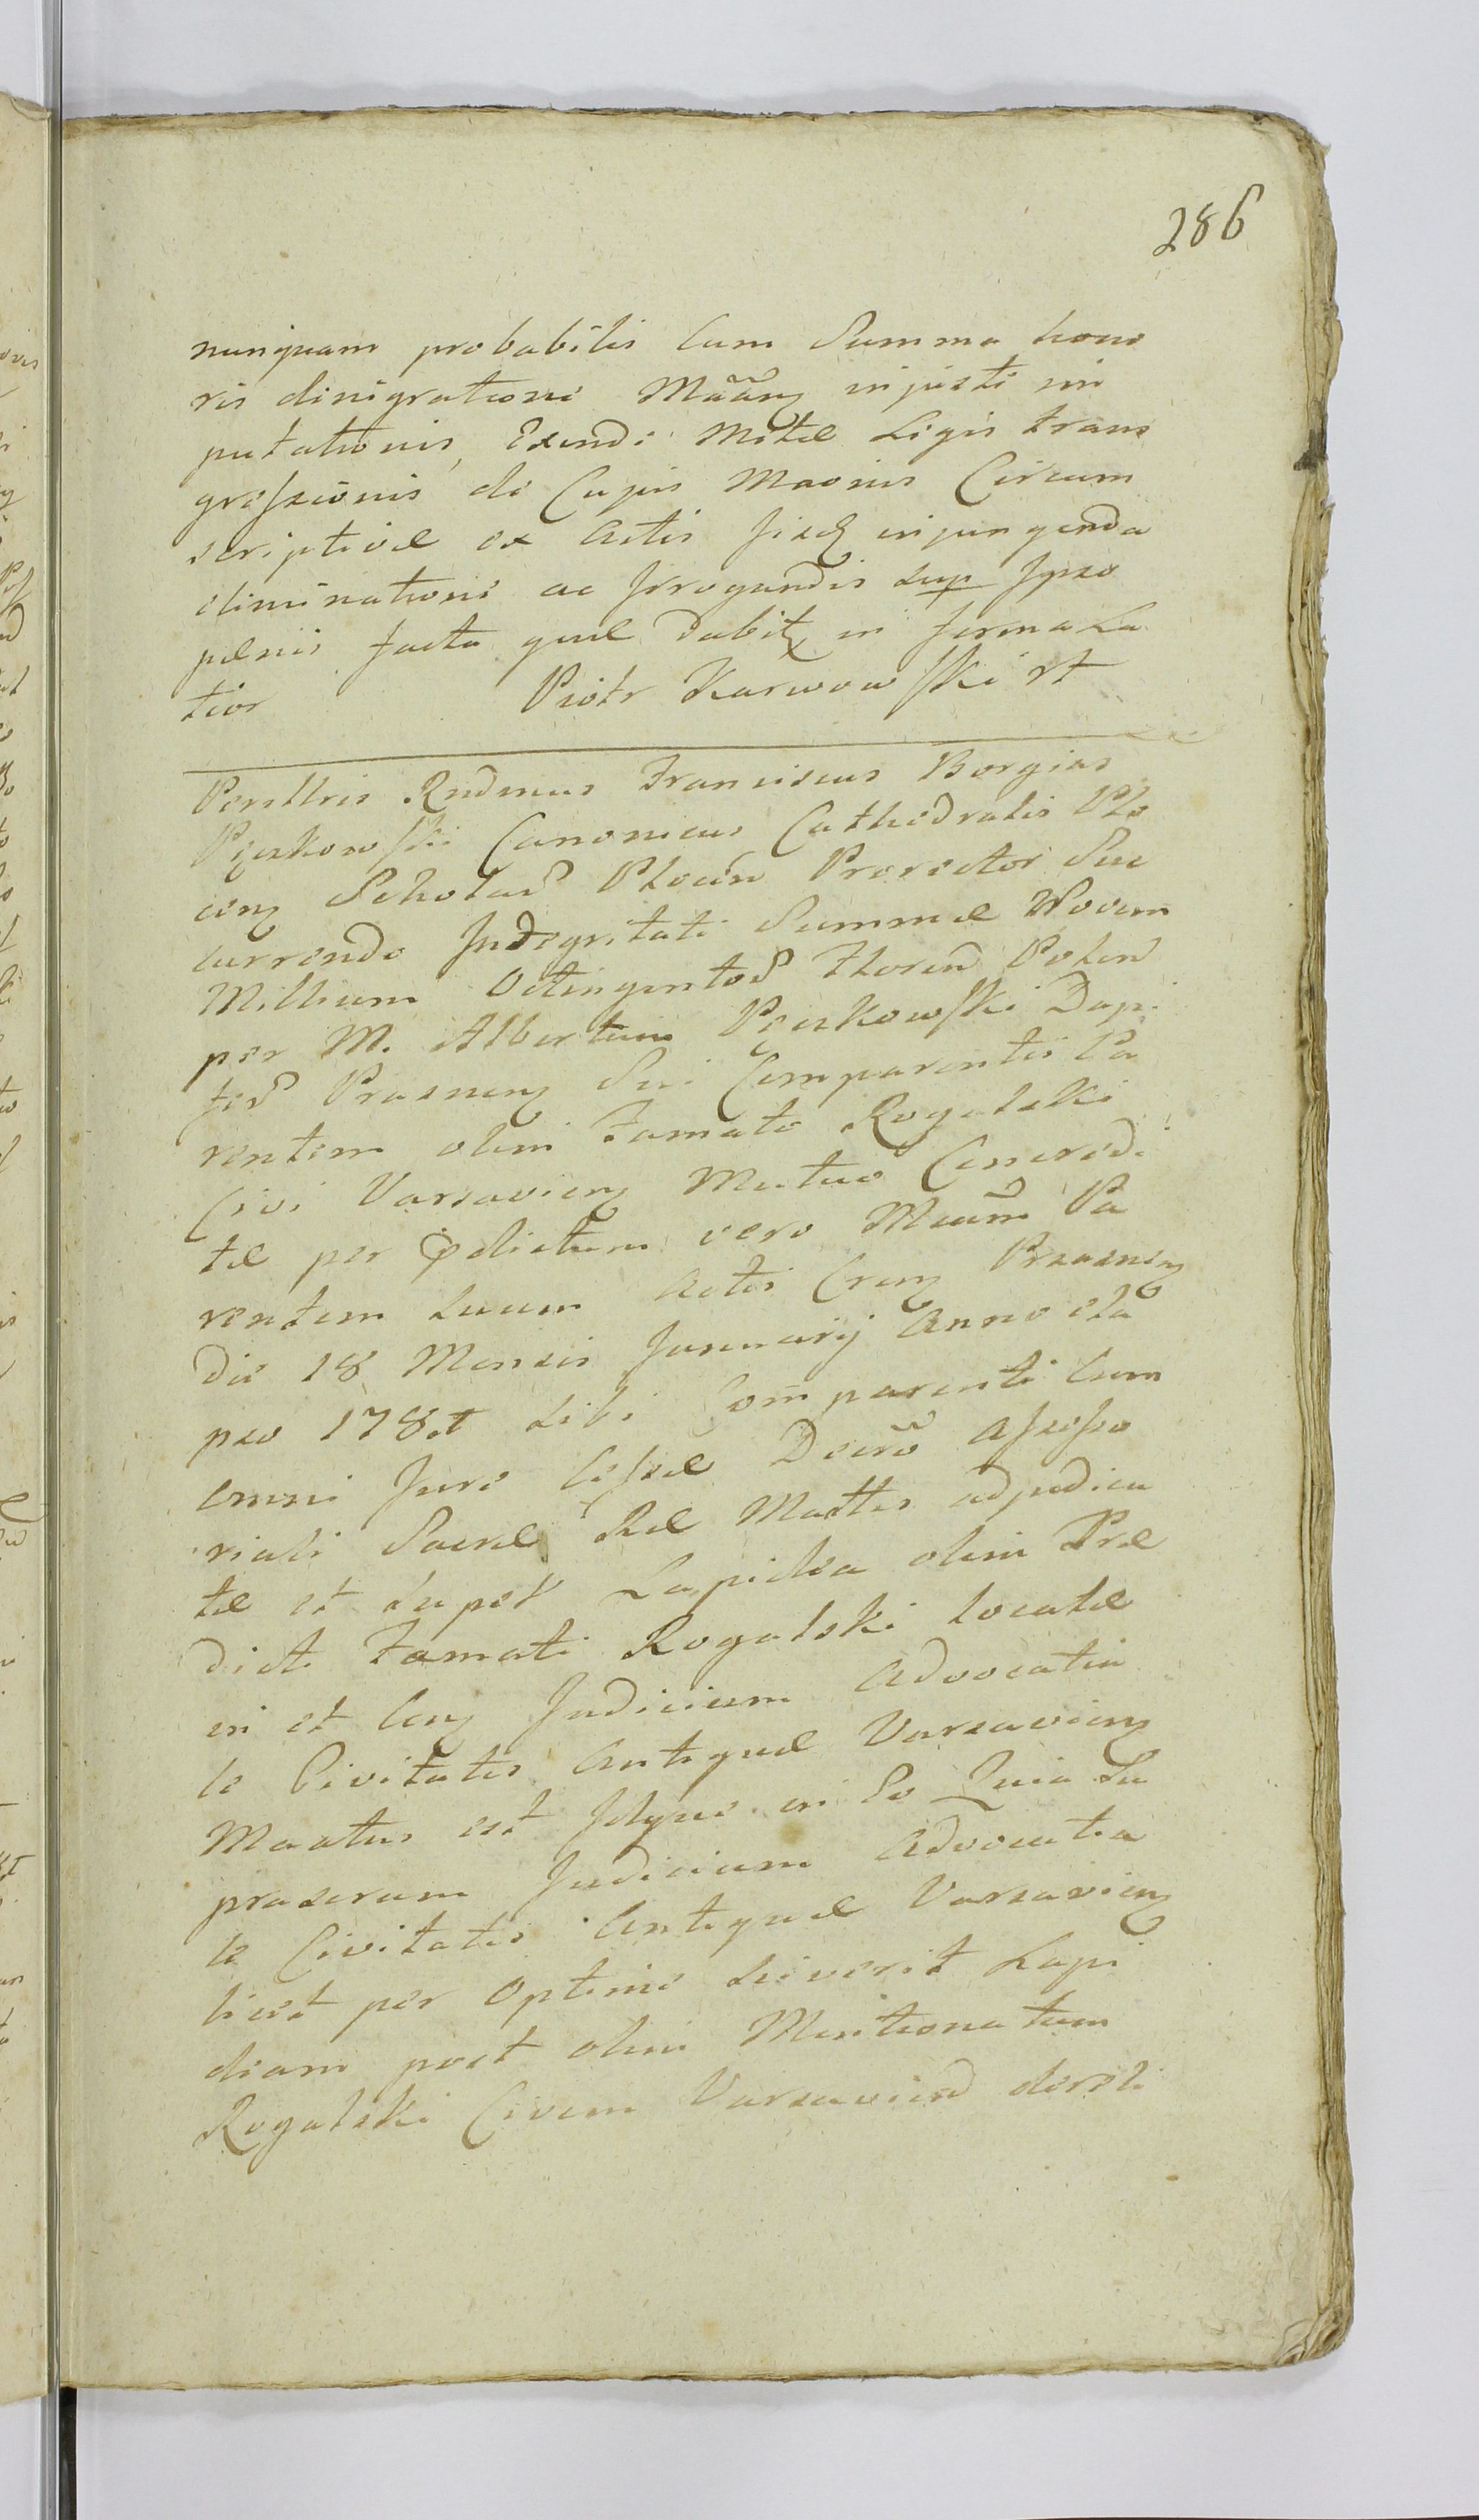 286
nunquam probabilis cum Summa hono
ris dinigratione Mããnꝫ injusti im
putationis, Exindi Mitæ Ligis trans
greſsionis de Cujus Maonis Circum
scriptivæ ex Actis injungenda
eliminatione ac Irrogandis sup Ipso
pænis facta quæ dabitꝫ in forma La
tior Piotr Karwowſki rt
Perillris Rndmus Franciscus Borgias
Pęczkowſki Canonicus Cathedralis Plo
cenꝫ Scholar Plocen̄ Prorector Suc
currendo Indegritati Summæ Novem
Millium Octingentor Floren Polon
per M. Albertum Pęczkowſki Dapi
fer Prasnenꝫ Sui Comparentis Pa
rentem olim Famato Rogalski
Civi Varsavienꝫ Mutuo Concredi
tæ per pdictum vero Mcum̄ Pa
rentem suum Actis Crenꝫ Prasnenꝫ
die 18 Mensis Januarij Anno ela
pso 178 sibi Com̄parenti cum
omni Jure Ceſsæ Decrõ Aſseſso
riali Sacræ Ræ Mattis adjudica
tæ et super Lapidea olim Præ
dicti Famati Rogalski locatæ
in et Conꝫ Judicium Advocatia
le Civitatis Antiquæ Varsavienꝫ
Maatus est Idque in Eo Quia Su
prascrum Judicium Advocatia
le Civitatis Antiquæ Varsavienꝫ
licet per optime sciverit Lapi
deam post olim Mentionatum
Rogalski Civem Varsavien dereli